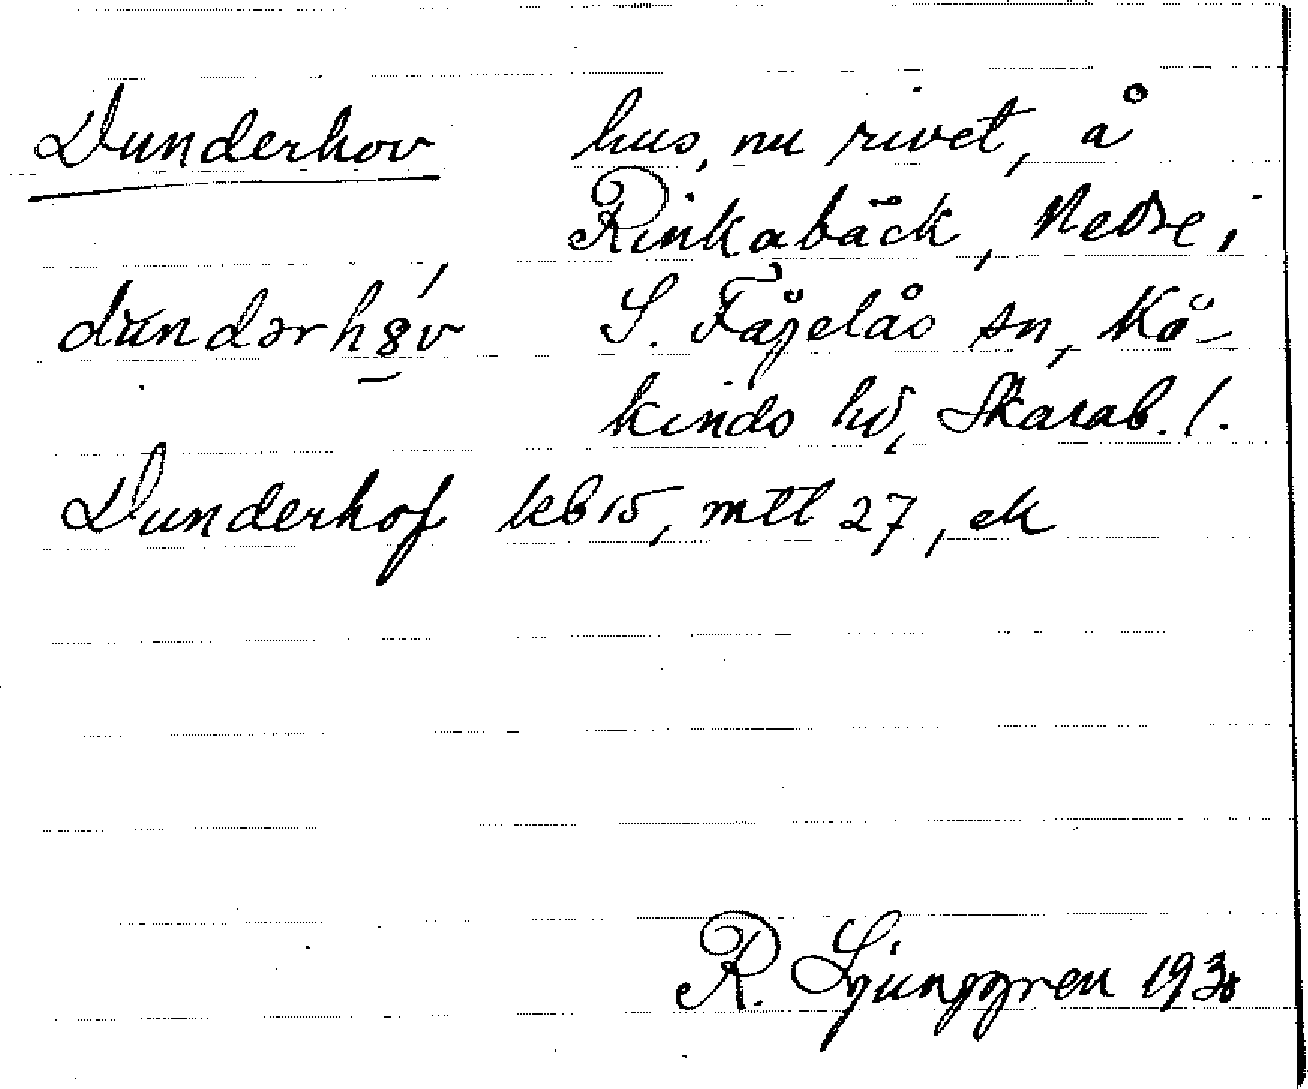 Dunderhov hus, nu rivet, å
Rinkabäck, Nedre, i
dundərh8v S. Fågelås sn, Kå-
kinds hd, Skarab. l.
Dunderhof kb 15, mtl 27, ek
R. Ljunggren 1930